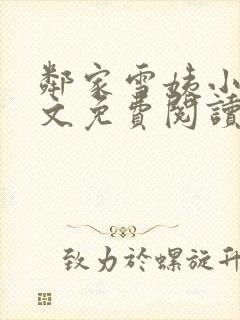 鄰家雪姨小
文免費閱讀
致力於螺旋升